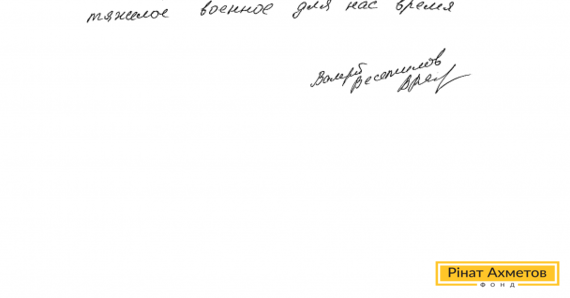 тяжелое военное для нас время
Валерб
Веселилов
Врач
Рінат Ахметов
ФОНД